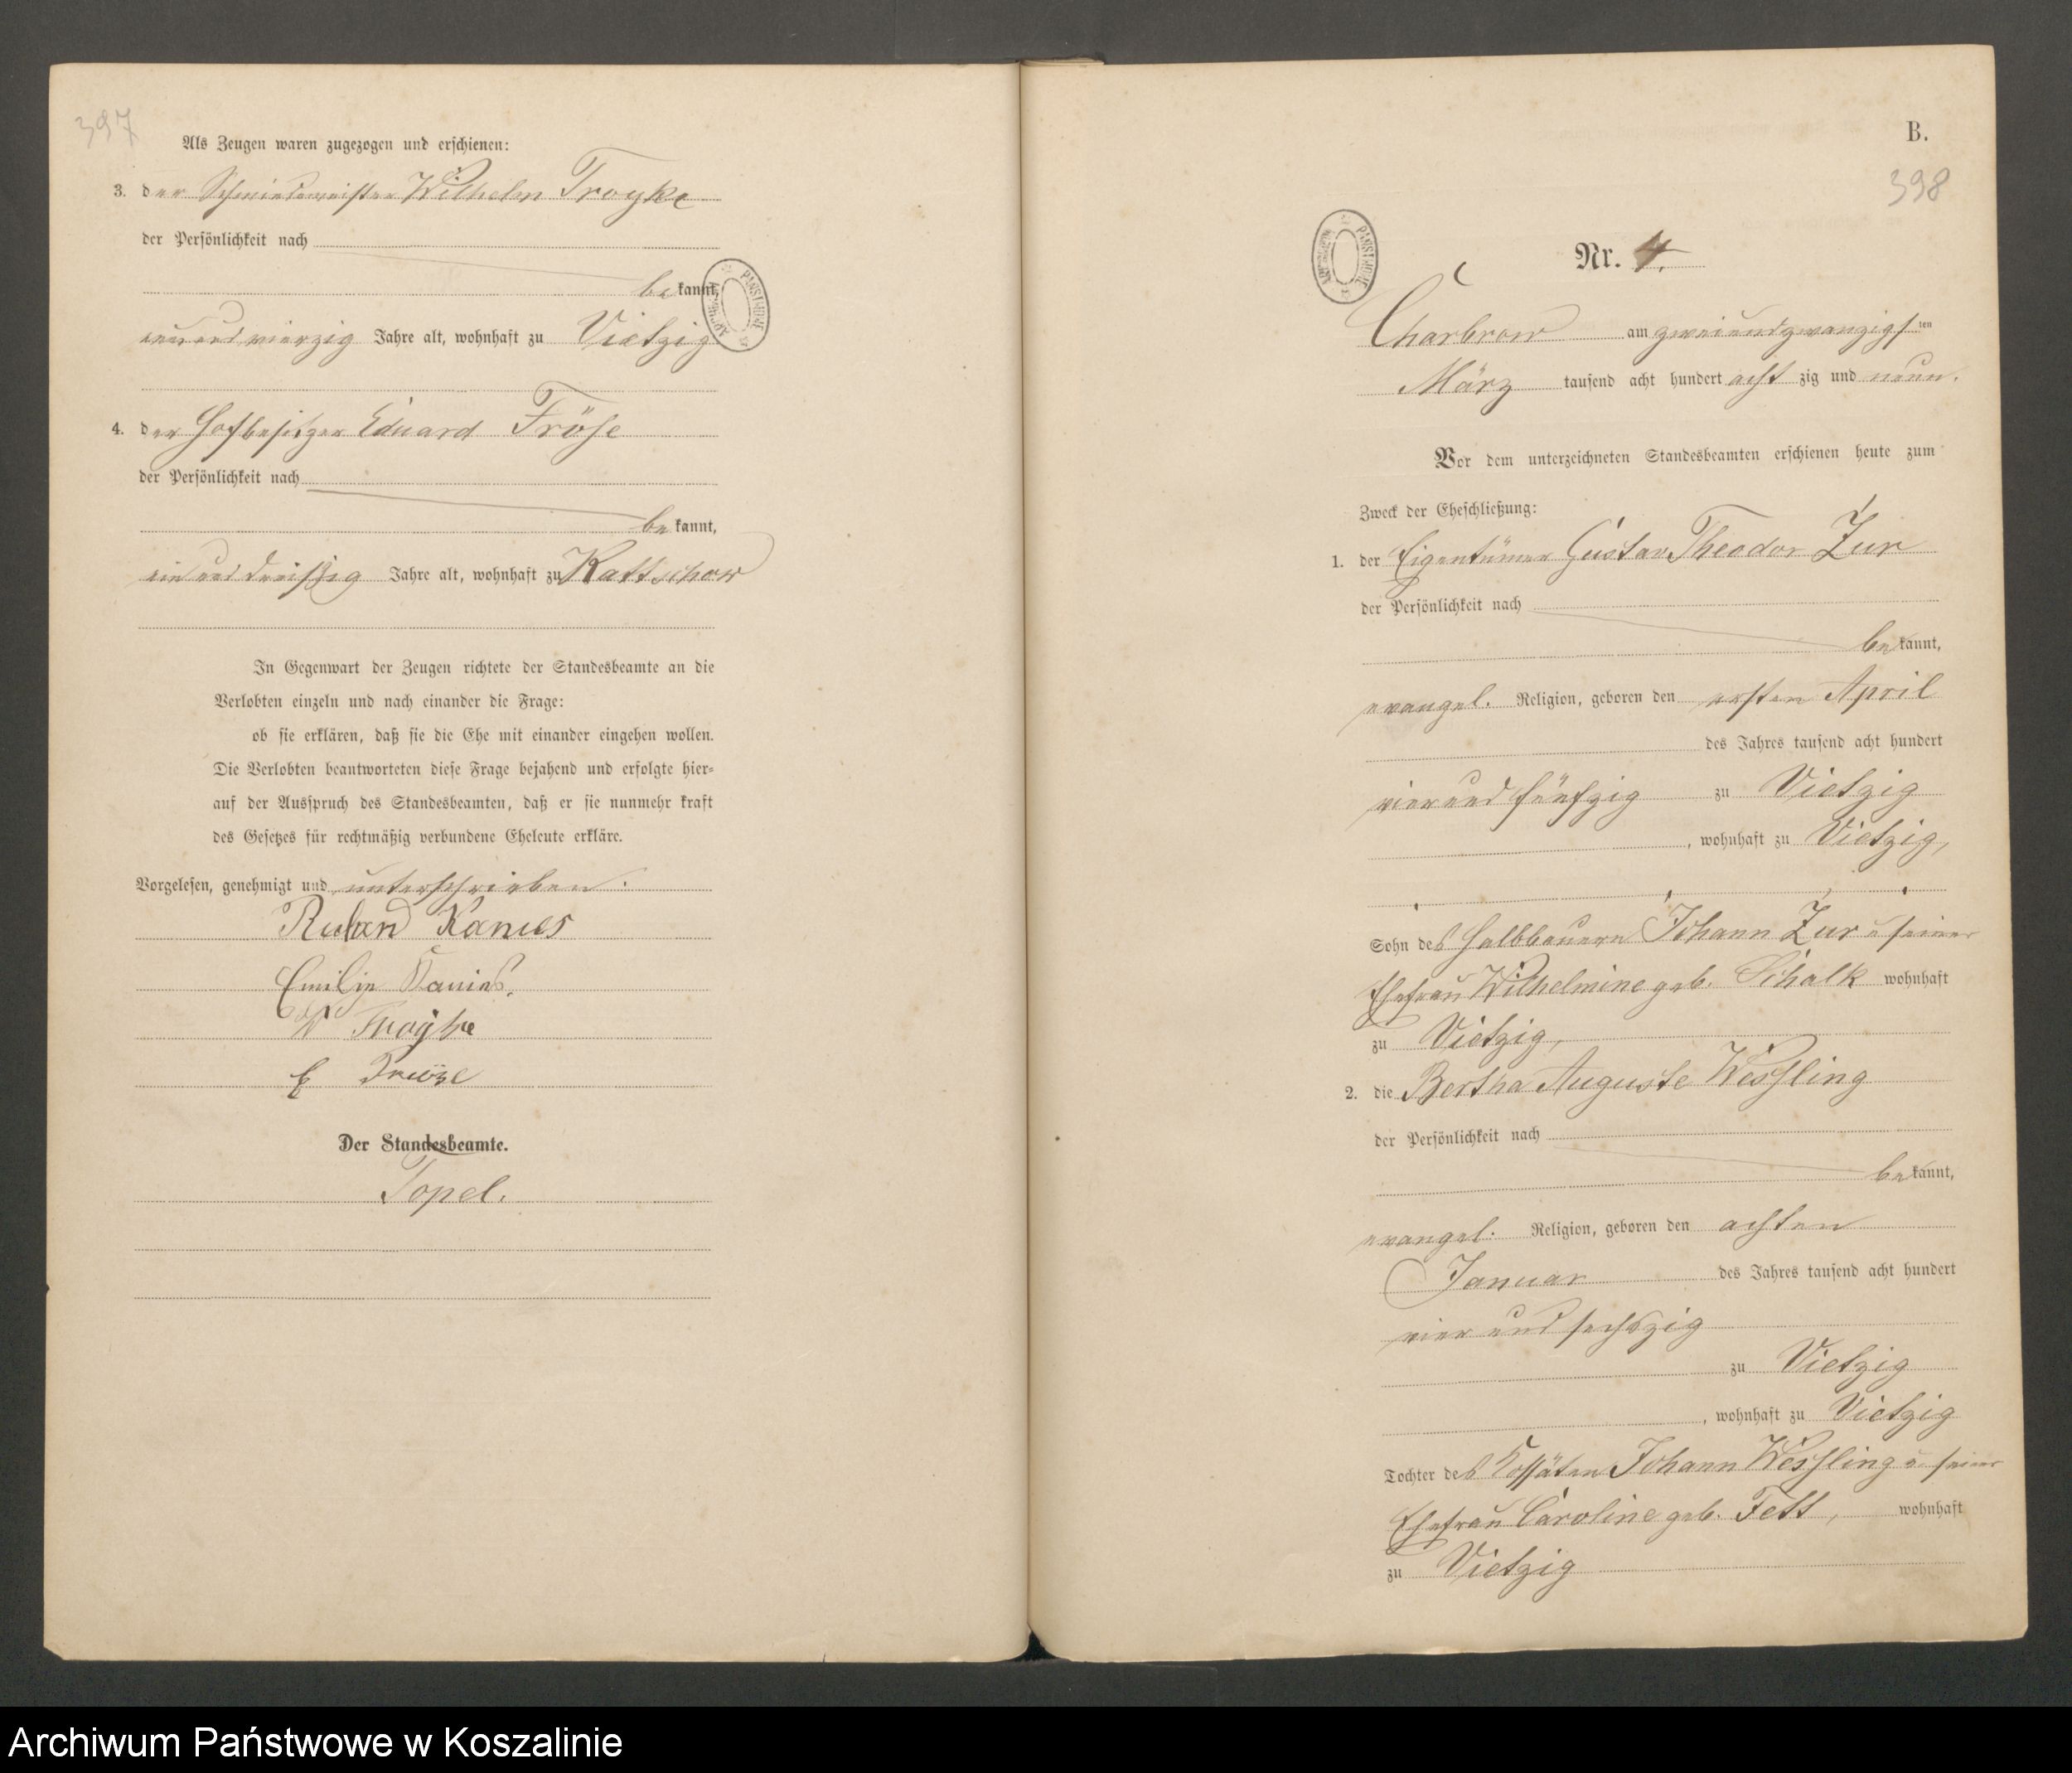 397
Als Zeugen waren zugezogen und erschienen:
3. der Schmiedemeister Wilhelm Troyke
der Persönlichkeit nach
be kannt,
neun und vierzig Jahre alt, wohnhaft zu Vietzig
4. der Hofbesitzer Eduard Fröse
der Persönlichkeit nach
be kannt,
ein und dreißig Jahre alt, wohnhaft zu Kattschow
In Gegenwart der Zeugen richtete der Standesbeamte an die
Verlobten einzeln und nach einander die Frage:
ob sie erklären, daß sie die Ehe mit einander eingehen wollen.
Die Verlobten beantworteten diese Frage bejahend und erfolgte hier-
auf der Ausspruch des Standesbeamten, daß er sie nunmehr kraft
des Gesetzes für rechtmäßig verbundene Eheleute erkläre.
Vorgelesen, genehmigt und unterschrieben.
Kanies
Emilie Kanies.
W Troyke
E
Der Standesbeamte.
Topel.
B.
398
Nr. 4.
Charbrow am zweiundzwanzigsten
März tausend acht hundert acht zig und neun.
Vor dem unterzeichneten Standesbeamten erschienen heute zum
Zweck der Eheschließung:
1. der Eigentümer Gustav Theodor Zur
der Persönlichkeit nach
be kannt,
evangel. Religion, geboren den ersten April
des Jahres tausend acht hundert
vier und fünfzig zu Vietzig
, wohnhaft zu Vietzig,
Sohn des Halbbauern Johann Zur u seiner
Ehefrau Wilhelmine geb. Schalk wohnhaft
zu Vietzig,
2. die Bertha Auguste Wessling
der Persönlichkeit nach
be kannt,
evangel. Religion, geboren den achten
Januar des Jahres tausend acht hundert
vier und sechszig
zu Vietzig
, wohnhaft zu Vietzig
Tochter des Kossäten Johann Wessling u. seiner
Ehefrau Caroline geb. Fett, wohnhaft
zu Vietzig
Archiwum Państwowe w Koszalinie